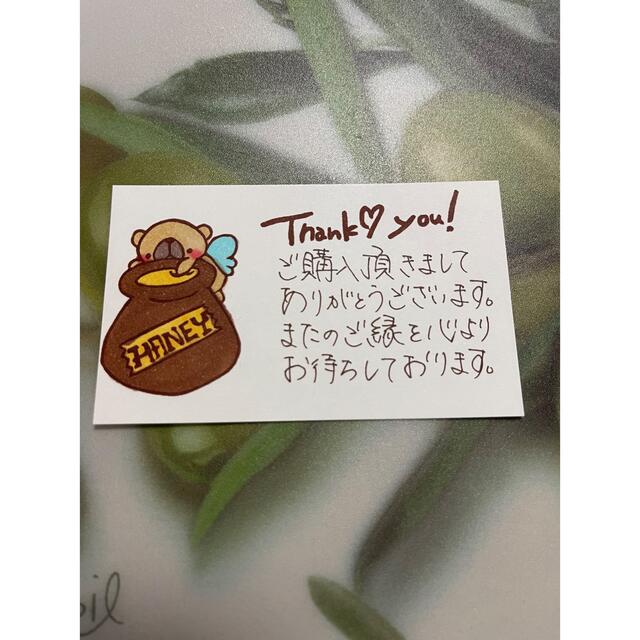 Thank♡you!
ご購入頂きまして
ありがとうございます。
またのご縁を心より
お待ちしております。
HANEY